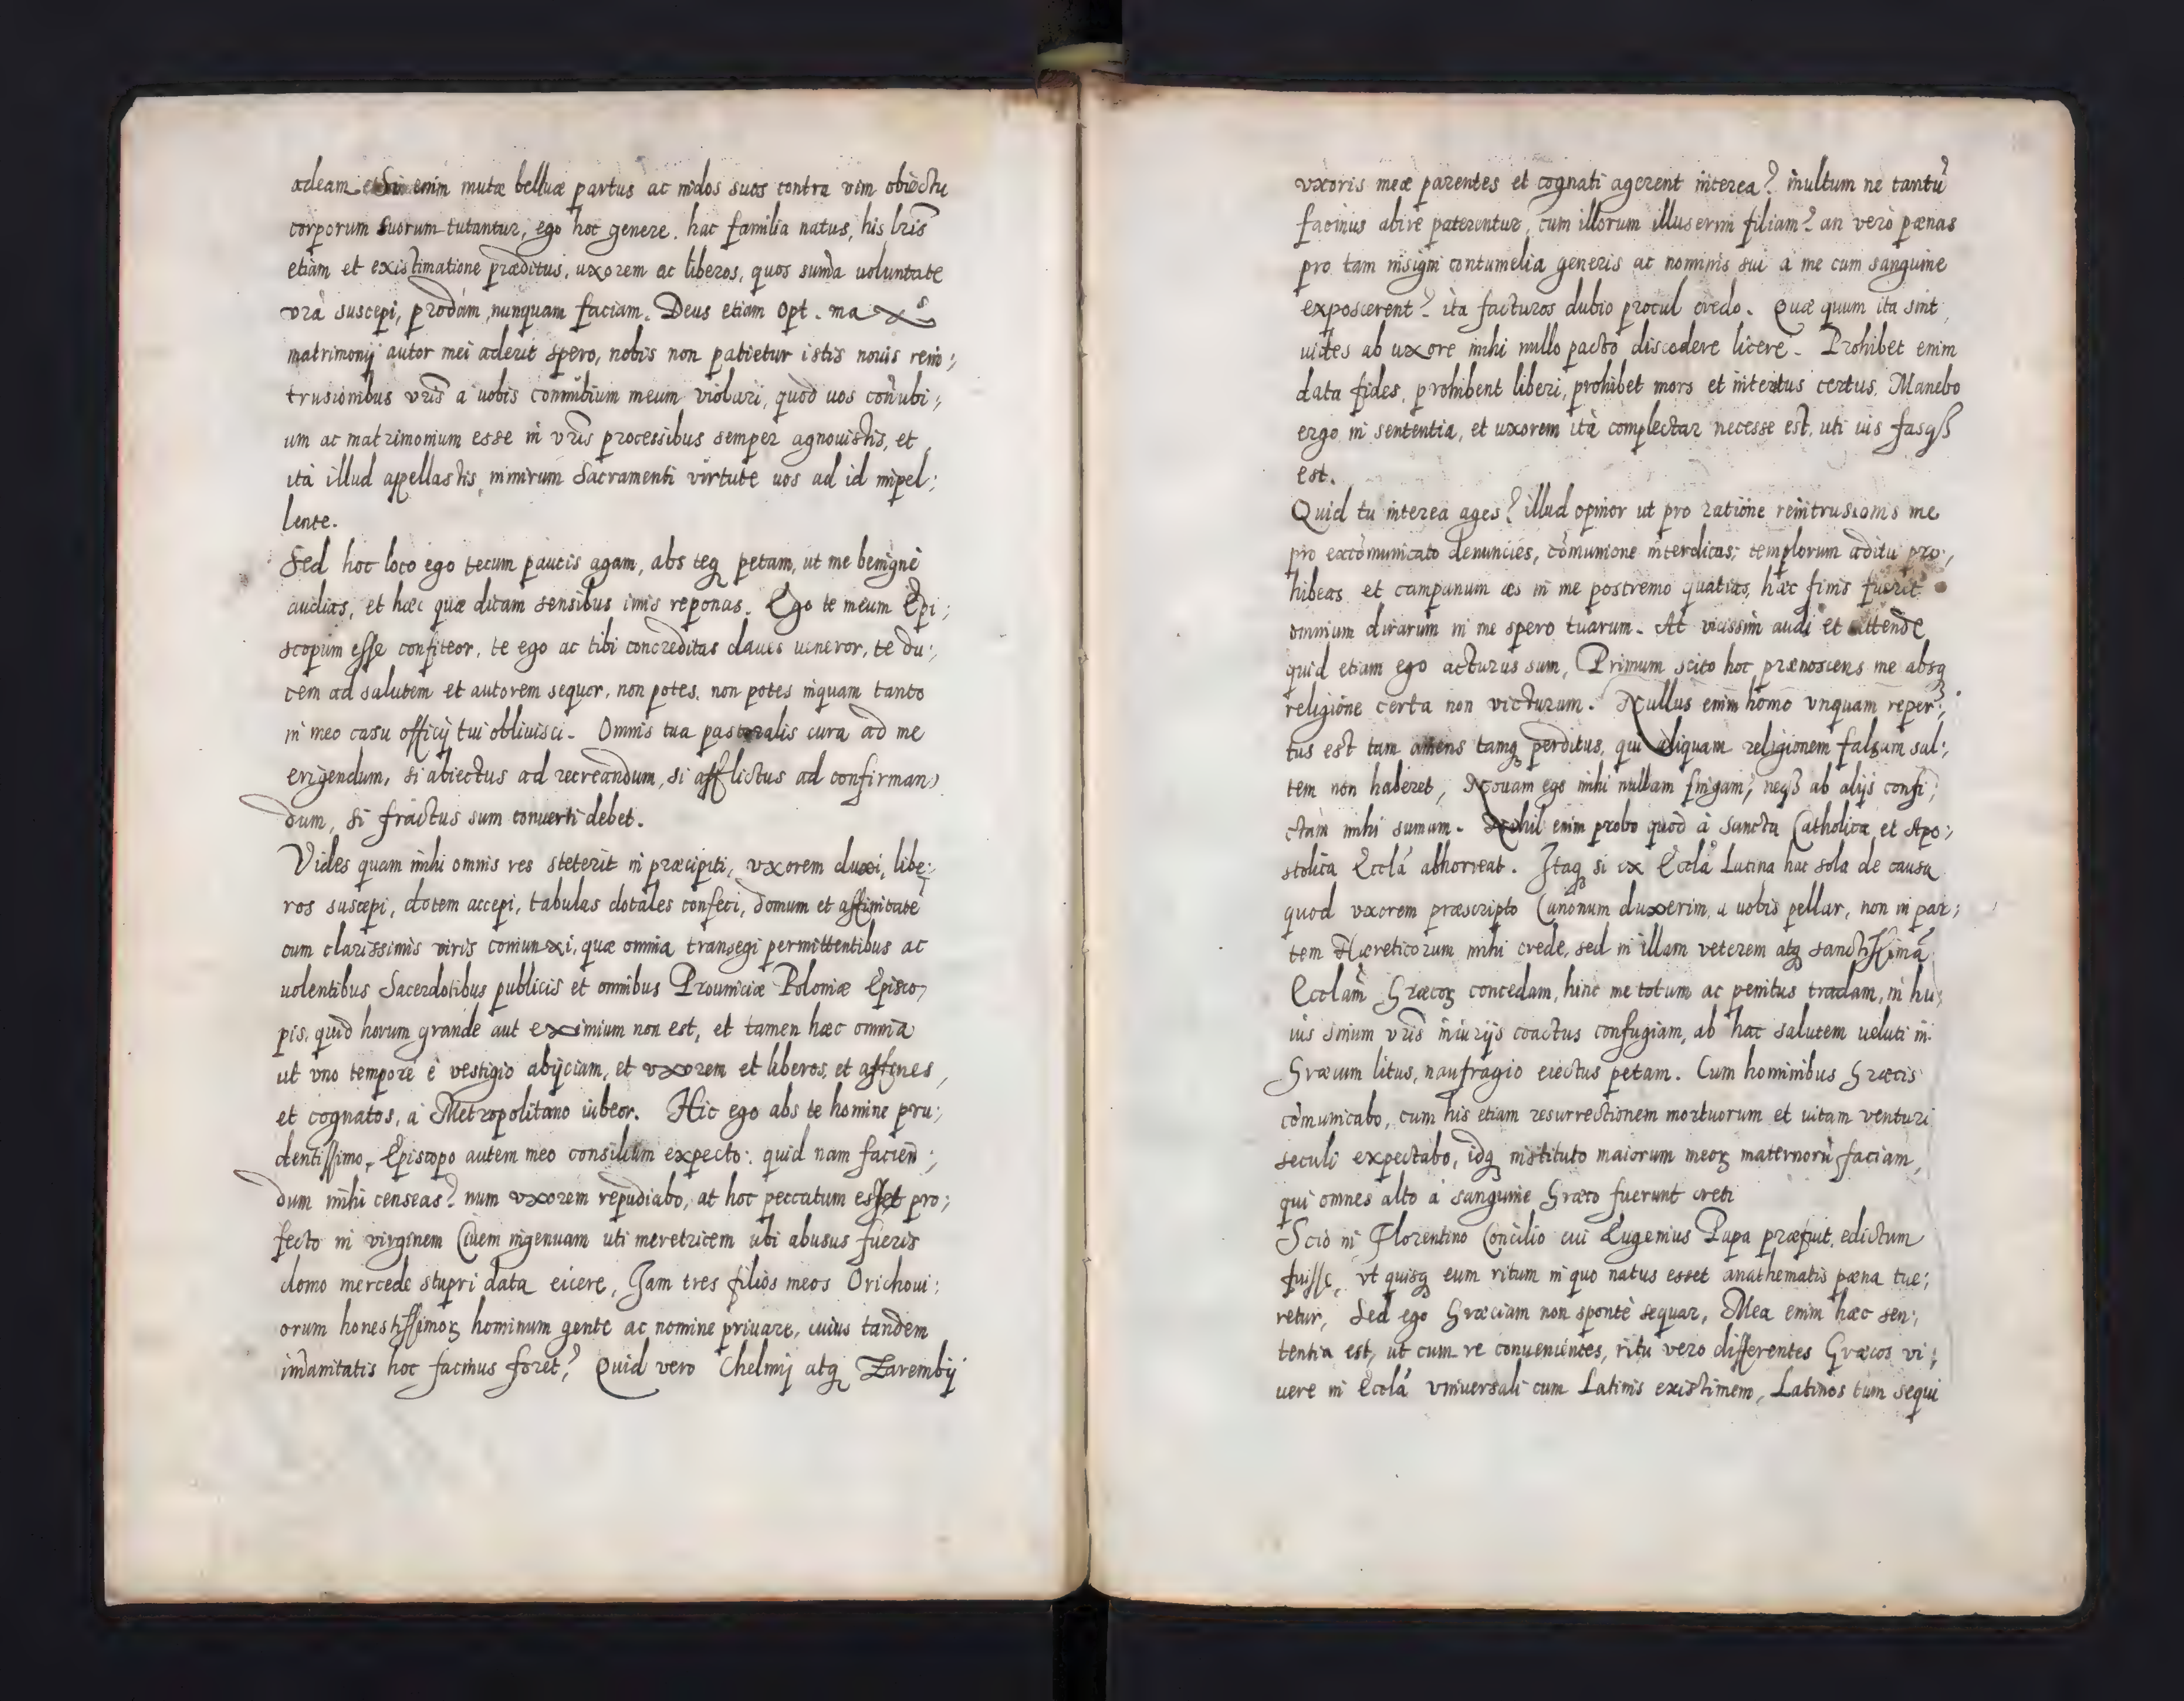 adeam. Si enim mutæ belluæ partus ac nidos suos contra vim obiectu
corporum suorum tutantur, ego hoc genere, hac familia natus, his lr̃is
etiam et existimatione præditus, uxorem ac liberos, quos sum̃a uoluntate
vr̃a suscepi, prodam, nunquam faciam. Deus etiam Opt. max⁠s
matrimonij autor mei aderit spero, nobis non patietur istis nouis rein;
trusionibus vr̃is a uobis connubium meum violari, quod uos coñubi;
um ac matrimonium esse in vr̃is processibus semper agnouistis, et
ità illud appellastis, nimirum Sacramenti virtute uos ad id impel;
lente.
Sed hoc loco ego tecum paucis agam, abs teq petam, ut me benignè
audias, et hæc quæ dicam sensibus imis reponas. Ego te meum Epi;
scopum esse confiteor, te ego ac tibi concreditas claues ueneror, te du;
cem ad salutem et autorem sequor, non potes, non potes inquam tanto
in meo casu officij tui obliuisci. Omnis tua pastoralis cura ad me
erigendum, si abiectus ad recreandum, si afflictus ad confirman
dum, si fractus sum conuerti debet.
Vides quam mihi omnis res steterit in præcipiti, vxorem duxi, libe;
ros suscepi, dotem accepi, tabulas dotales confeci, domum et affinitatē
cum clarissimis viris coniunxi, quæ omnia transegi permittentibus ac
uolentibus Sacerdotibus publicis et omnibus Prouinciæ Poloniæ Episco
pis, quid horum grande aut eximium non est, et tamen hæc omnia
ut vno tempore è vestigio abijciam, et vxorem et liberos, et affines,
et cognatos, à Metropolitano iubeor. Hic ego abs te homine pru;
dentissimo, Episcopo autem meo consilium expecto: quid nam facien;
dum mihi censeas? num vxorem repudiabo, at hoc peccatum esset pro;
fecto in virginem Ciuem ingenuam uti meretricem ubi abusus fueris
domo mercede stupri data eicere, Jam tres filios meos Orichoui:
orum honestissimoꝝ hominum gente ac nomine priuare, cuius tandem
im̃anitatis hoc facinus foret? Quid vero Chelmij atq Zarembij
vxoris meæ parentes et cognati agerent interea? inultum ne tantũ
facinus abire paterentur, cum illorum illuserim filiam? an verò pænas
pro tam insigni contumelia generis ac nominis sui a me cum sanguine
exposcerent? ità facturos dubio procul credo. Quæ quum ita sint,
uides ab uxore mihi nullo pacto discedere licere. Prohibet enim
data fides, prohibent liberi, prohibet mors et interitus certus. Manebo
ergo in sententia, et uxorem ità complectar necesse est, uti uis fasqß
est.
Quid tu interea ages? illud opinor ut pro ratione reintrusionis me
pro excõmunicato denuncies, cõmunione interdicas; templorum aditu pro;
hibeas et campanum æs in me postremo quatias, hæc finis fuerit
omnium dirarum in me spero tuarum. At vicissim audi et attende
quid etiam ego acturus sum, Primum scito hoc prænoscens me absq
religione certa non victurum. Nullus enim homo vnquam reper;
tus est tam amens tamq perditus, qui aliquam religionem falsam sal;
tem non haberet, Nouam ego mihi nullam fingam, neqß ab alijs confi;
ctam mihi sumam. Nihil enim probo quod à Sancta Catholica et Apo;
stolica Eccla᷃ abhorreat. Itaq si ex Eccla᷃ Latina hac sola de causa
quod vxorem præscripto Canonum duxerim, a uobis pellar, non in par;
tem Hæreticorum mihi crede, sed in illam veterem atq sanctissimā
Ecclam̃ Græcoꝝ concedam, hinc me totum ac penitus tradam, in hu
ius sinum vr̃is iniurijs coactus confugiam, ab hac salutem ueluti in
Græcum litus, naufragio eiectus petam. Cum hominibus Græcis
cõmunicabo, cum his etiam resurrectionem mortuorum et uitam venturi
seculi expectabo, idq instituto maiorum meoꝝ maternorũ faciam,
qui omnes alto à sanguine Græco fuerunt creti
Scio in Florentino Concilio cui Eugenius Papa præfuit, edictum
fuisse, vt quisq eum ritum in quo natus esset anathematis pæna tue;
retur, Sed ego Græciam non spontè sequar, Mea enim hæc sen;
tentia est, ut cum re conuenientes, ritu vero differentes Græcos vi;
uere in Eccla᷃ vniuersali cum Latinis existimem, Latinos tum sequi